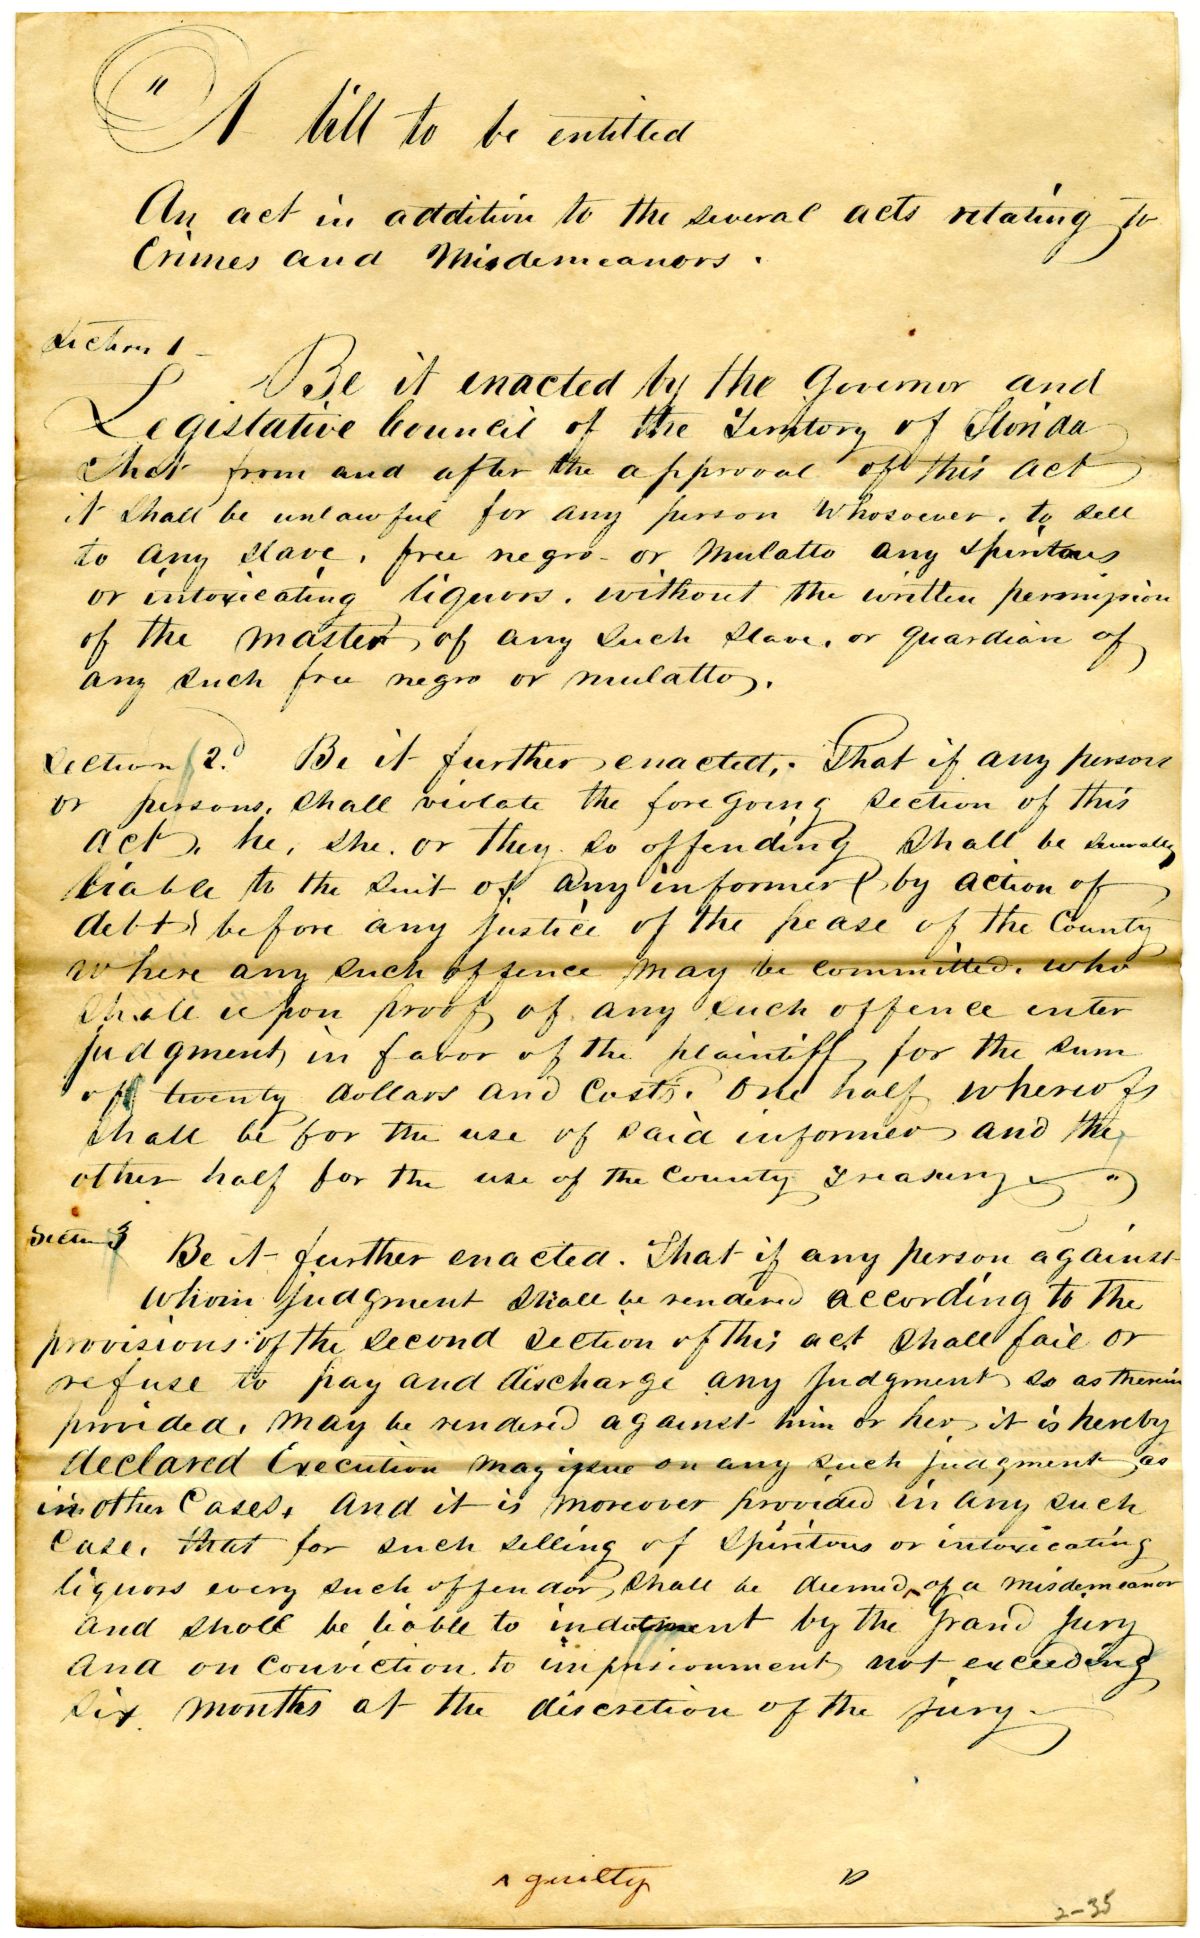 "A bill to be entitled
An act in addition to the several acts relating to
Crimes and Misdemeanors.
Section 1
Be it enacted by the Governor and
Legislative Council of the Territory of Florida
That from and after the approval of this act
it shall be unlawful for any person whosoever, to sell
to any slave, free negro or mulatto any spiritous
or intoxicating liquors, without the written permission
of the master of any such slave, or guardian of
any such free negro or mulatto.
Section 2. Be it further enacted, That if any person
or persons, shall violate the foregoing section of this
act, he, she, or they so offending shall be severally
liable to the suit of any informer by action of
debt before any justice of the pease of the County
where any such offence may be committed, who
shall upon proof of any such offence enter
judgment in favor of the plaintiff for the sum
of twenty dollars and Costs, One half whereof
shall be for the use of said informer and the
other half for the use of the County Treasury "
Section 3 Be it further enacted. That if any person against
whom judgment shall be rendered according to the
provisions of the second section of this act shall fail or
refuse to pay and discharge any judgment so as therein
provided, may be rendered against him or her, it is hereby
declared Execution may issue on any such judgment as
in other Cases, And it is moreover provided in any such
Case, that for such selling of spiritous or intoxicating
liquors every such offendor shall be deemed ^ of a misdemeanor
and shall be liable to indictment by the Grand jury
and on conviction to imprisionment not exceeding
six months at the discretion of the jury.
^ guilty
2-35